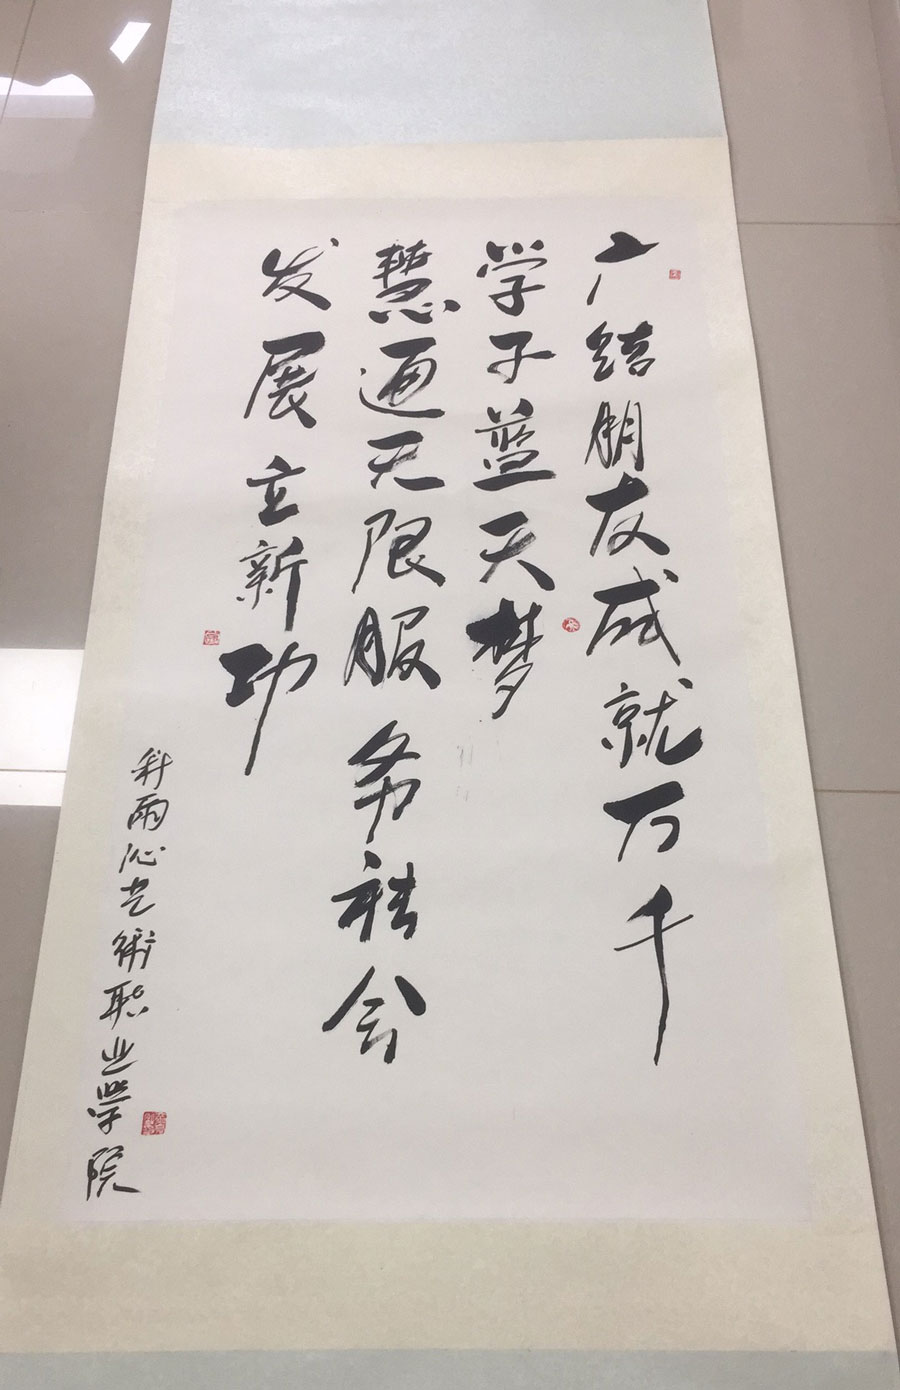 广结朋友成就万千
学子蓝天梦
慧通无限服务社会
发展立新功
雨沁艺術职业学院